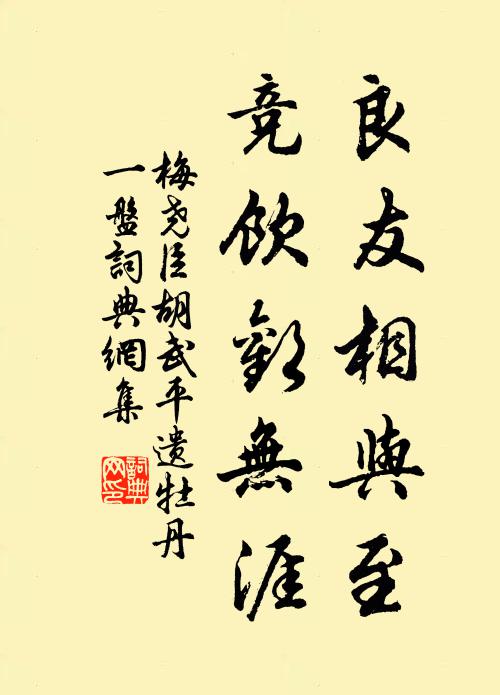 良友相與至
竞飲歡無涯
梅尧臣胡武平遗牡丹
一盤詞典網集
詞典
网印